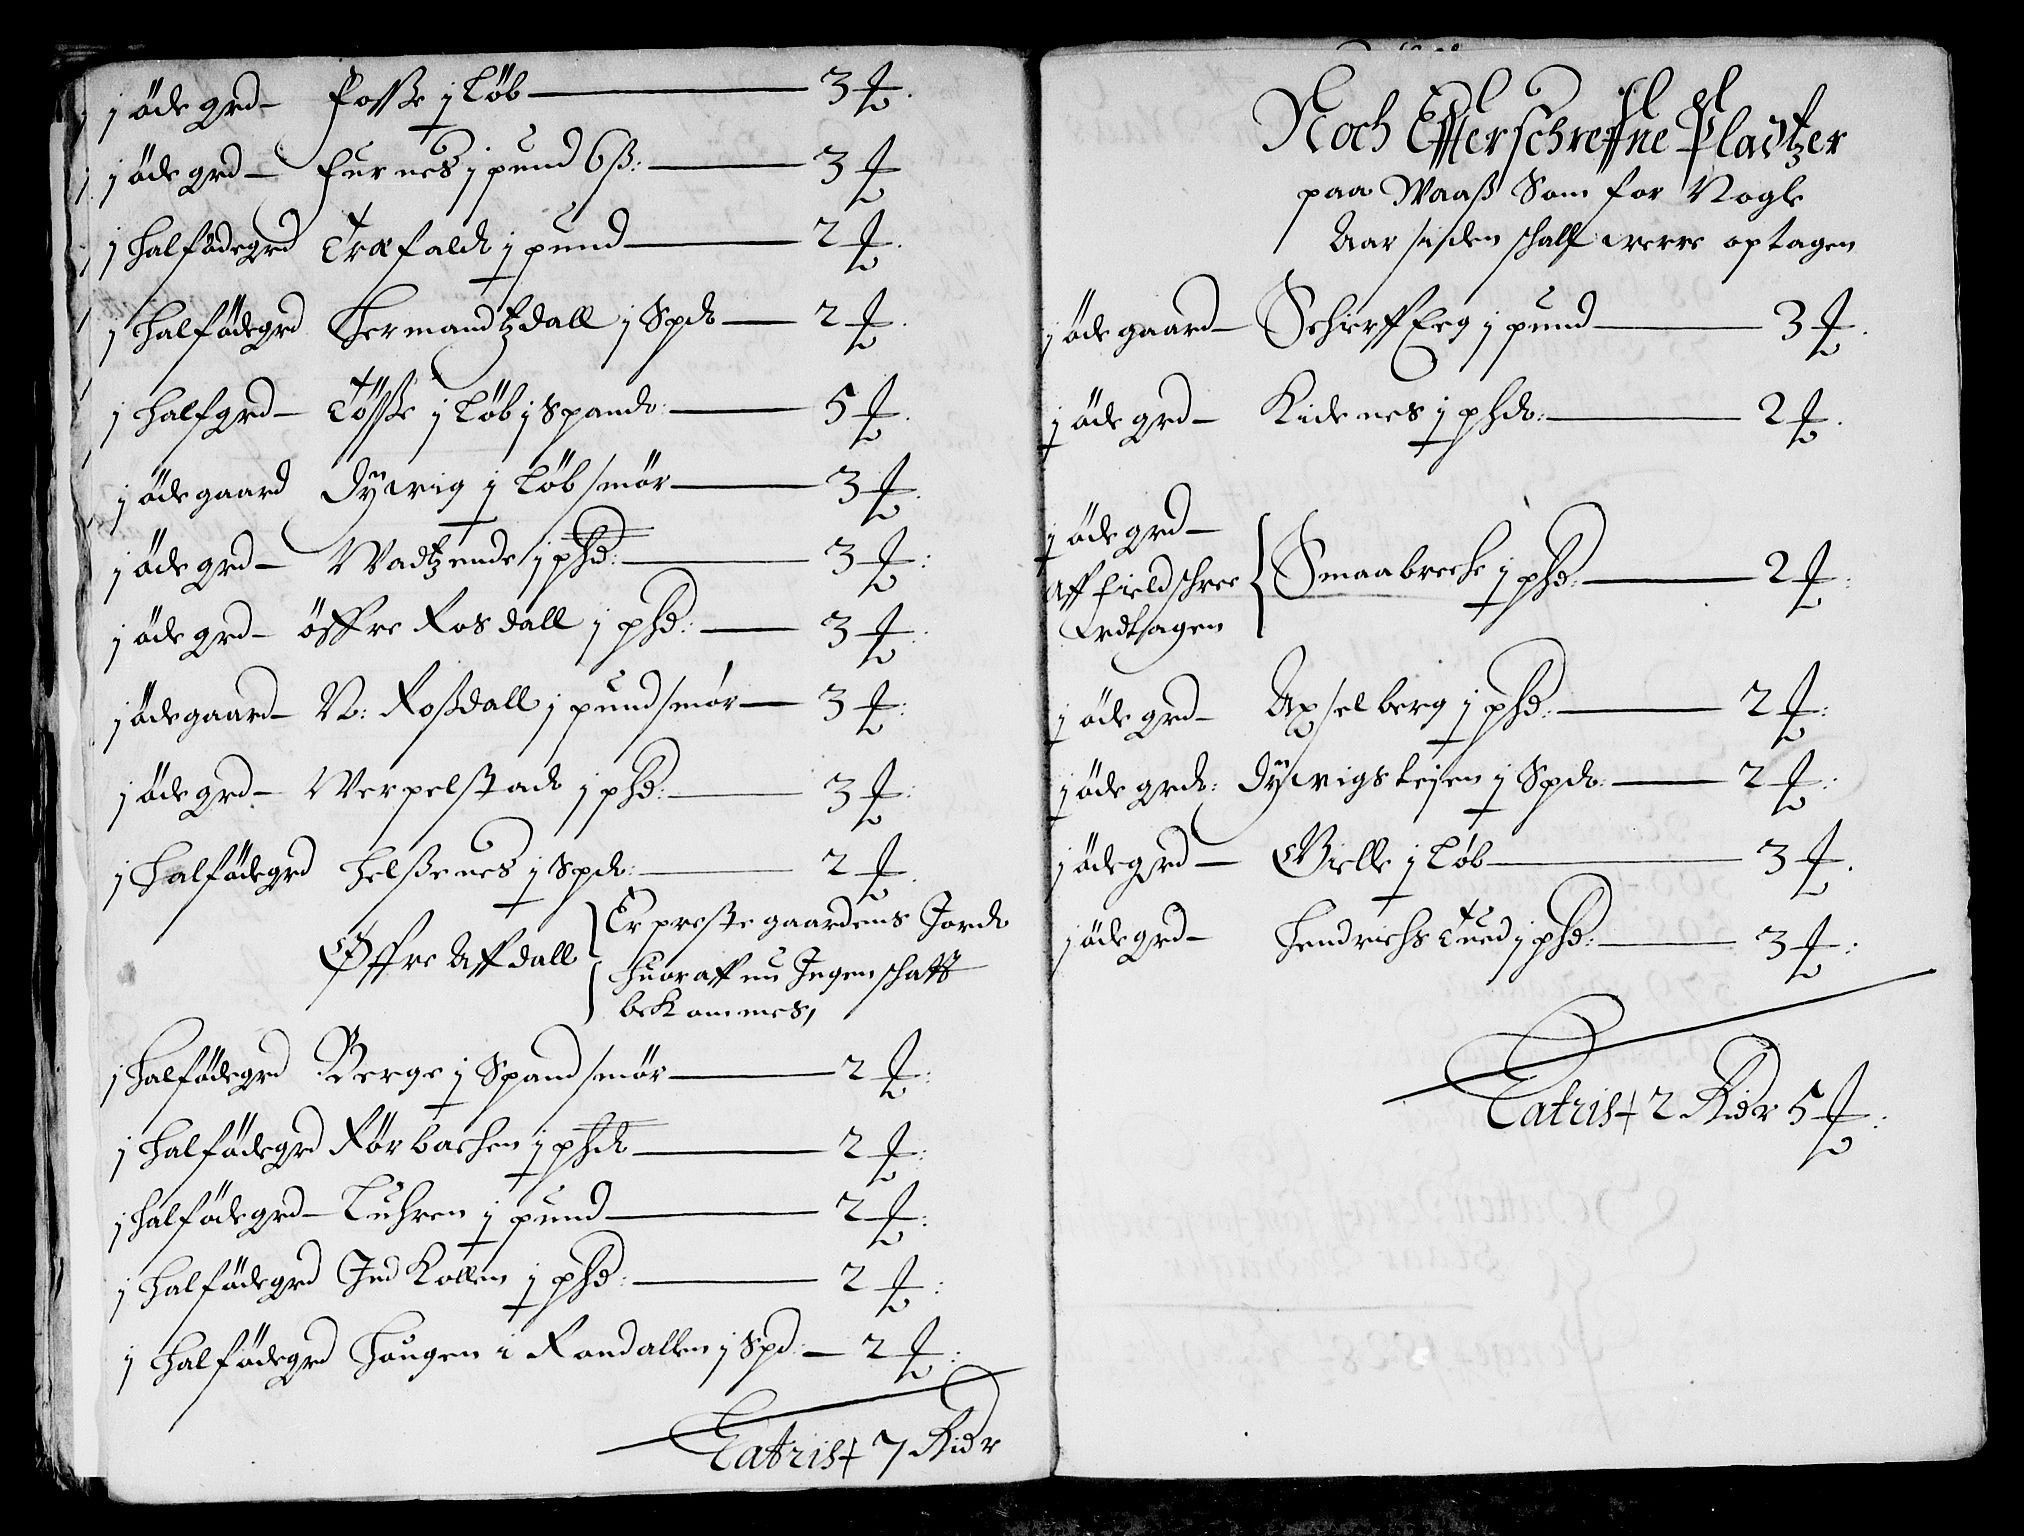 j öde grd — Fosse j Löb — 3 ₰.
j öde grd — Furnes j pund 6 ß: — 3 ₰
j half ödegrd Træfald j pund — 2 ₰.
j half ödegrd Hermandtzdall j Spd — 2 ₰.
j half grd — Tösse j Löb j Spand: — 5 ₰.
j öde gaard Dÿwig j Löb smör — 3 ₰.
j öde grd — Wadtzende j phd: — 3 ₰:
j öde grd — öffre Rosdall j phd: — 3 ₰:
j öde gaard — N: Rossdall j pund smör — 3 ₰:
j öde grd — Werpelstad j phd: — 3 ₰:
j half ödegrd Helssenes j Spd: — 2 ₰.
Öffre Affdall { Er prestegaardens Jord
huoraff nu Ingen schatt
bekommes,
j half ödegrd Berge j Spand smör — 2 ₰:
j half ödegrd Rörbachen j phd — 2 ₰:
j half ödegrd — Luhren j pund — 2 ₰:
j half ödegrd Indkollen j phd: — 2 ₰:
j half ödegrd Haugen i Randallen j Spd: — 2 ₰:
Latris + 7 Rider
Noch Effterschreffne Pladtzer
paa Waass Som for Nogle
Aar siden schall werre optagen
j öde gaard — Schierff Eeg j pund — 3 ₰.
j öde grd — Kidenes j phd: — 2 ₰.
j öde grd —
Aff fieldschree
Erdtagen { Smaabreche j phd: — 2 ₰:
j öde grd — Axselberg j phd: — 2 ₰:
j öde grd: Dÿwigsleien j Spd: — 2 ₰:
j ödegrd — Gielle j Löb — 3 ₰.
j ödegrd — Hendrichs Tued j phd: — 3 ₰:
Latris + 2 Rider 5 ₰: